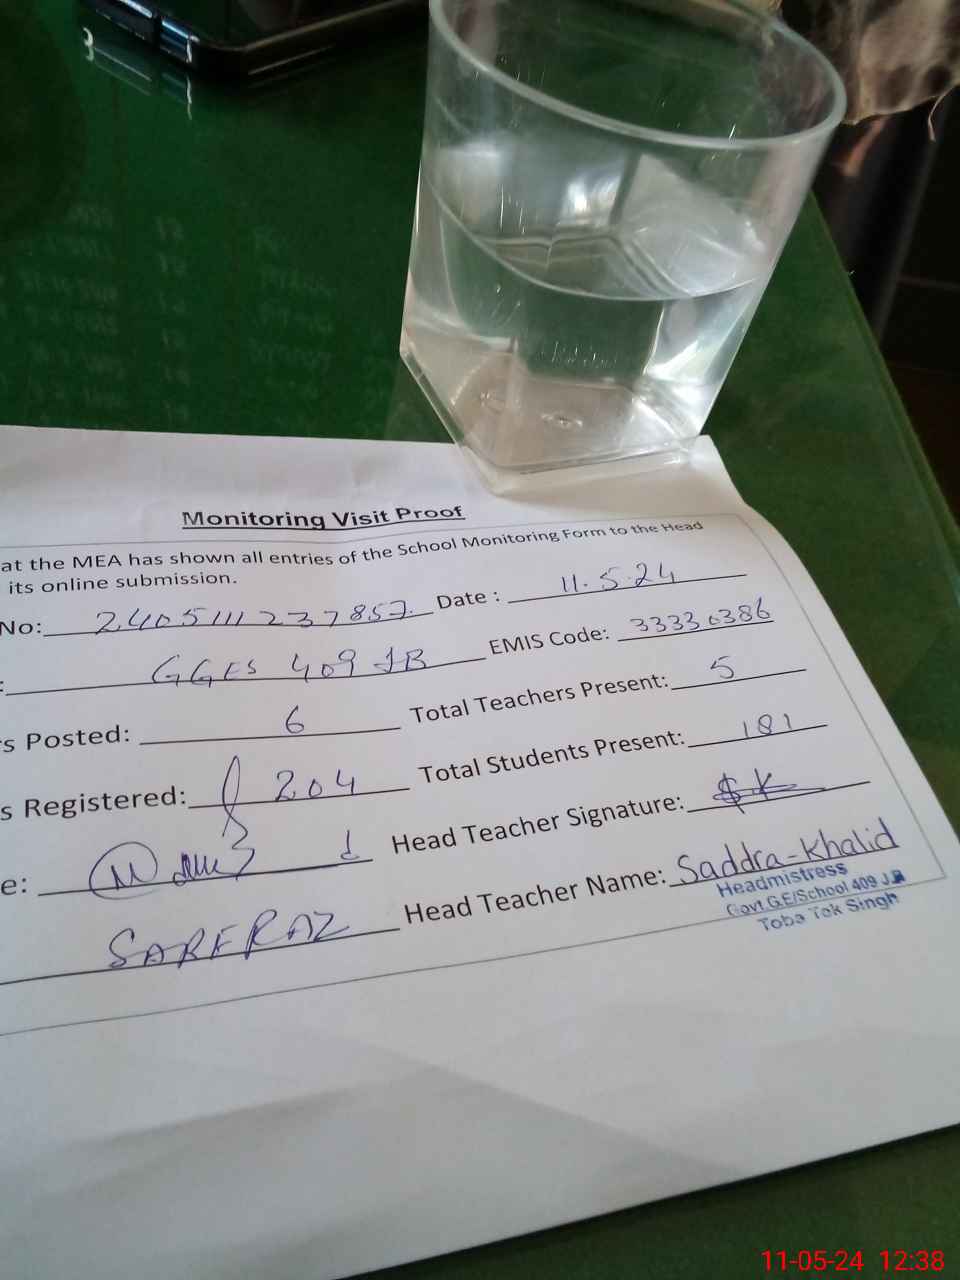 Monitoring Visit Proof
at the MEA has shown all entries of the School Monitoring Form to the Head
its online submission.
No: 2405111237857 Date : 11.5.24
: GGES 409 JB EMIS Code: 33330386
s Posted: 6 Total Teachers Present: 5
s Registered: 204 Total Students Present: 181
e: Head Teacher Signature: SK
SARFRAZ Head Teacher Name: Saddra-Khalid
Headmistress
Govt.G.E/School 409 J.B
Toba Tek Singh
11-05-24 12:38